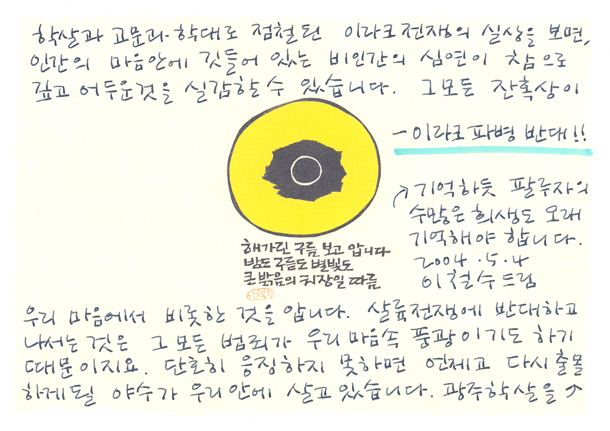 학살과 고문과 학대로 점철된 이라크전쟁의 실상을 보면,
인간의 마음안에 깃들어 있는 비인간의 심연이 참으로
깊고 어두운것을 실감할 수 있습니다. 그모든 잔혹상이
우리 마음에서 비롯한 것을 압니다. 살륙전쟁에 반대하고
나서는 것은 그 모든 범죄가 우리마음속 풍광이기도 하기
때문이지요. 단호히 응징하지 못하면 언제고 다시 출몰
하게될 야수가 우리안에 살고있습니다. 광주학살을 ↗
↗ 기억하듯 팔루자의
수많은 희생도 오래
기억해야 합니다.
2004.5.4
이철수드림
- 이라크파병 반대!!
해가린 구름 보고 압니다
밤도 구름도 별빛도
큰 밝음의 뒤장일 따름